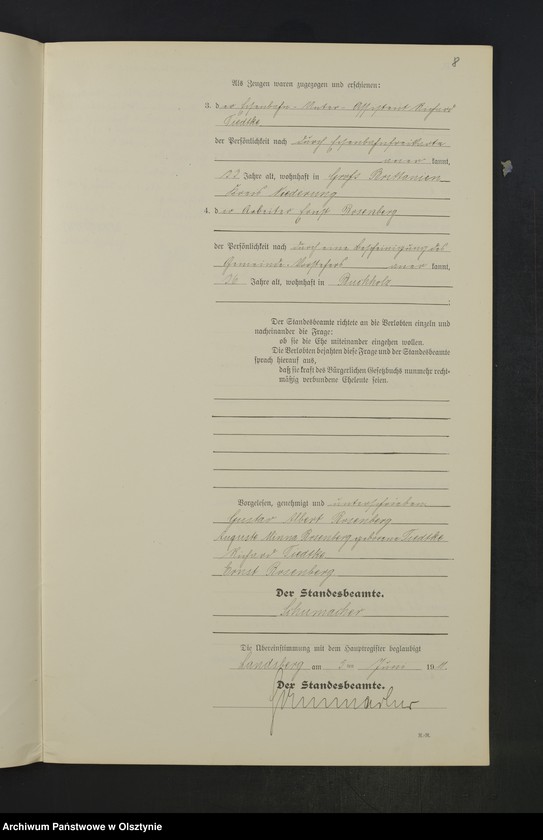 8
Als Zeugen waren zugezogen und erschienen:
3. der Eisenbahn-Unter-Assistent Richard
Tiedtke
der Persönlichkeit nach durch Eisenbahnfreikarte
aner kannt,
22 Jahre alt, wohnhaft in Groß
Kreis Niederung
4. der Arbeiter Ernst Rosenberg
der Persönlichkeit nach durch eine Bescheinigung des
Gemeinde-Vorstehers aner kannt,
26 Jahre alt, wohnhaft in Buchholz
.
Der Standesbeamte richtete an die Verlobten einzeln und
nacheinander die Frage:
ob sie die Ehe miteinander eingehen wollen.
Die Verlobten bejahten diese Frage und der Standesbeamte
sprach hierauf aus,
daß sie kraft des Bürgerlichen Gesetzbuchs nunmehr recht-
mäßig verbundene Eheleute seien.
Vorgelesen, genehmigt und unterschrieben
Gustav Albert Rosenberg
Auguste Minna Rosenberg geborene Tiedtke
Richard Tiedtke
Ernst Rosenberg
Der Standesbeamte.
Schumacher
Die Übereinstimmung mit dem Hauptregister beglaubigt
Landsberg am 3ten 19
Der Standesbeamte.
Schumacher
E.-R.
Archiwum Państwowe w Olsztynie